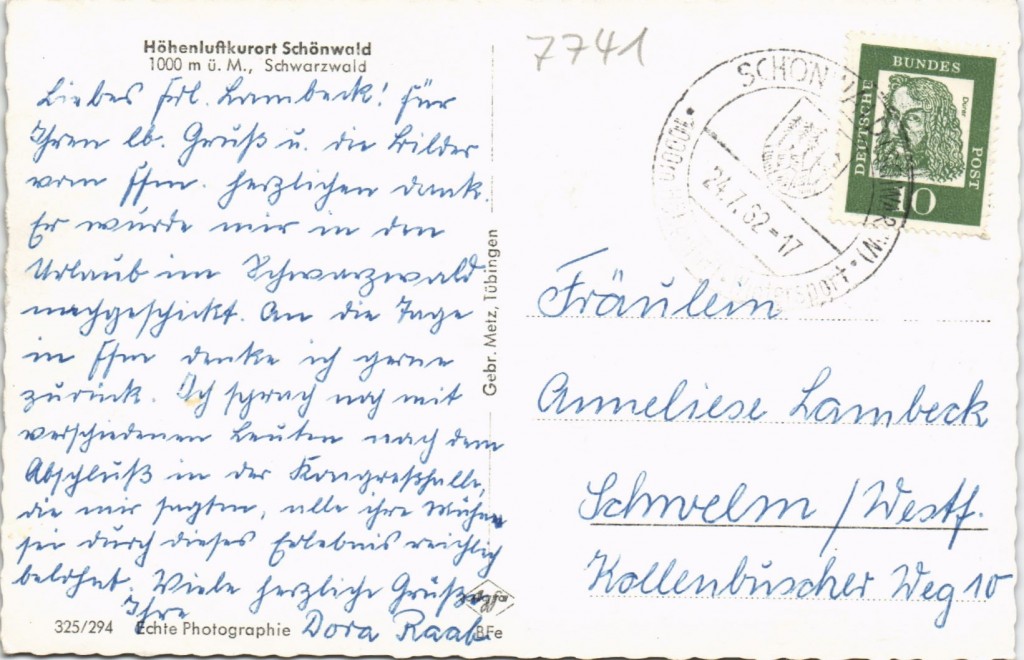 Höhenluftkurort Schönwald
1000 m ü. M., Schwarzwald
Liebes Frl. Lambeck! Für
Ihren lb. Gruß u. die Bilder
vom Ffm. herzlichen Dank.
Er wurde mir in den
Urlaub im Schwarzwald
nachgeschickt. An die Tage
in Ffm denke ich gerne
zurück. Ich sprach noch mit
verschiedenen Leuten nach dem
Abschluß in der Kongreßhalle,
die mir sagten, alle ihre Mühen
sei durch dieses Erlebnis reichlich
belohnt. Viele herzliche Grüße
Ihre
Dora Raab
325/294 Echte Photographie
BFe
Gebr. Metz, Tübingen
7741
SCHÖNWALD
24.7.62-17
Wintersport
DEUTSCHE
BUNDES
POST
Dürer
10
Fräulein
Anneliese Lambeck
Schwelm / Westf.
Kollenbuscher Weg 10